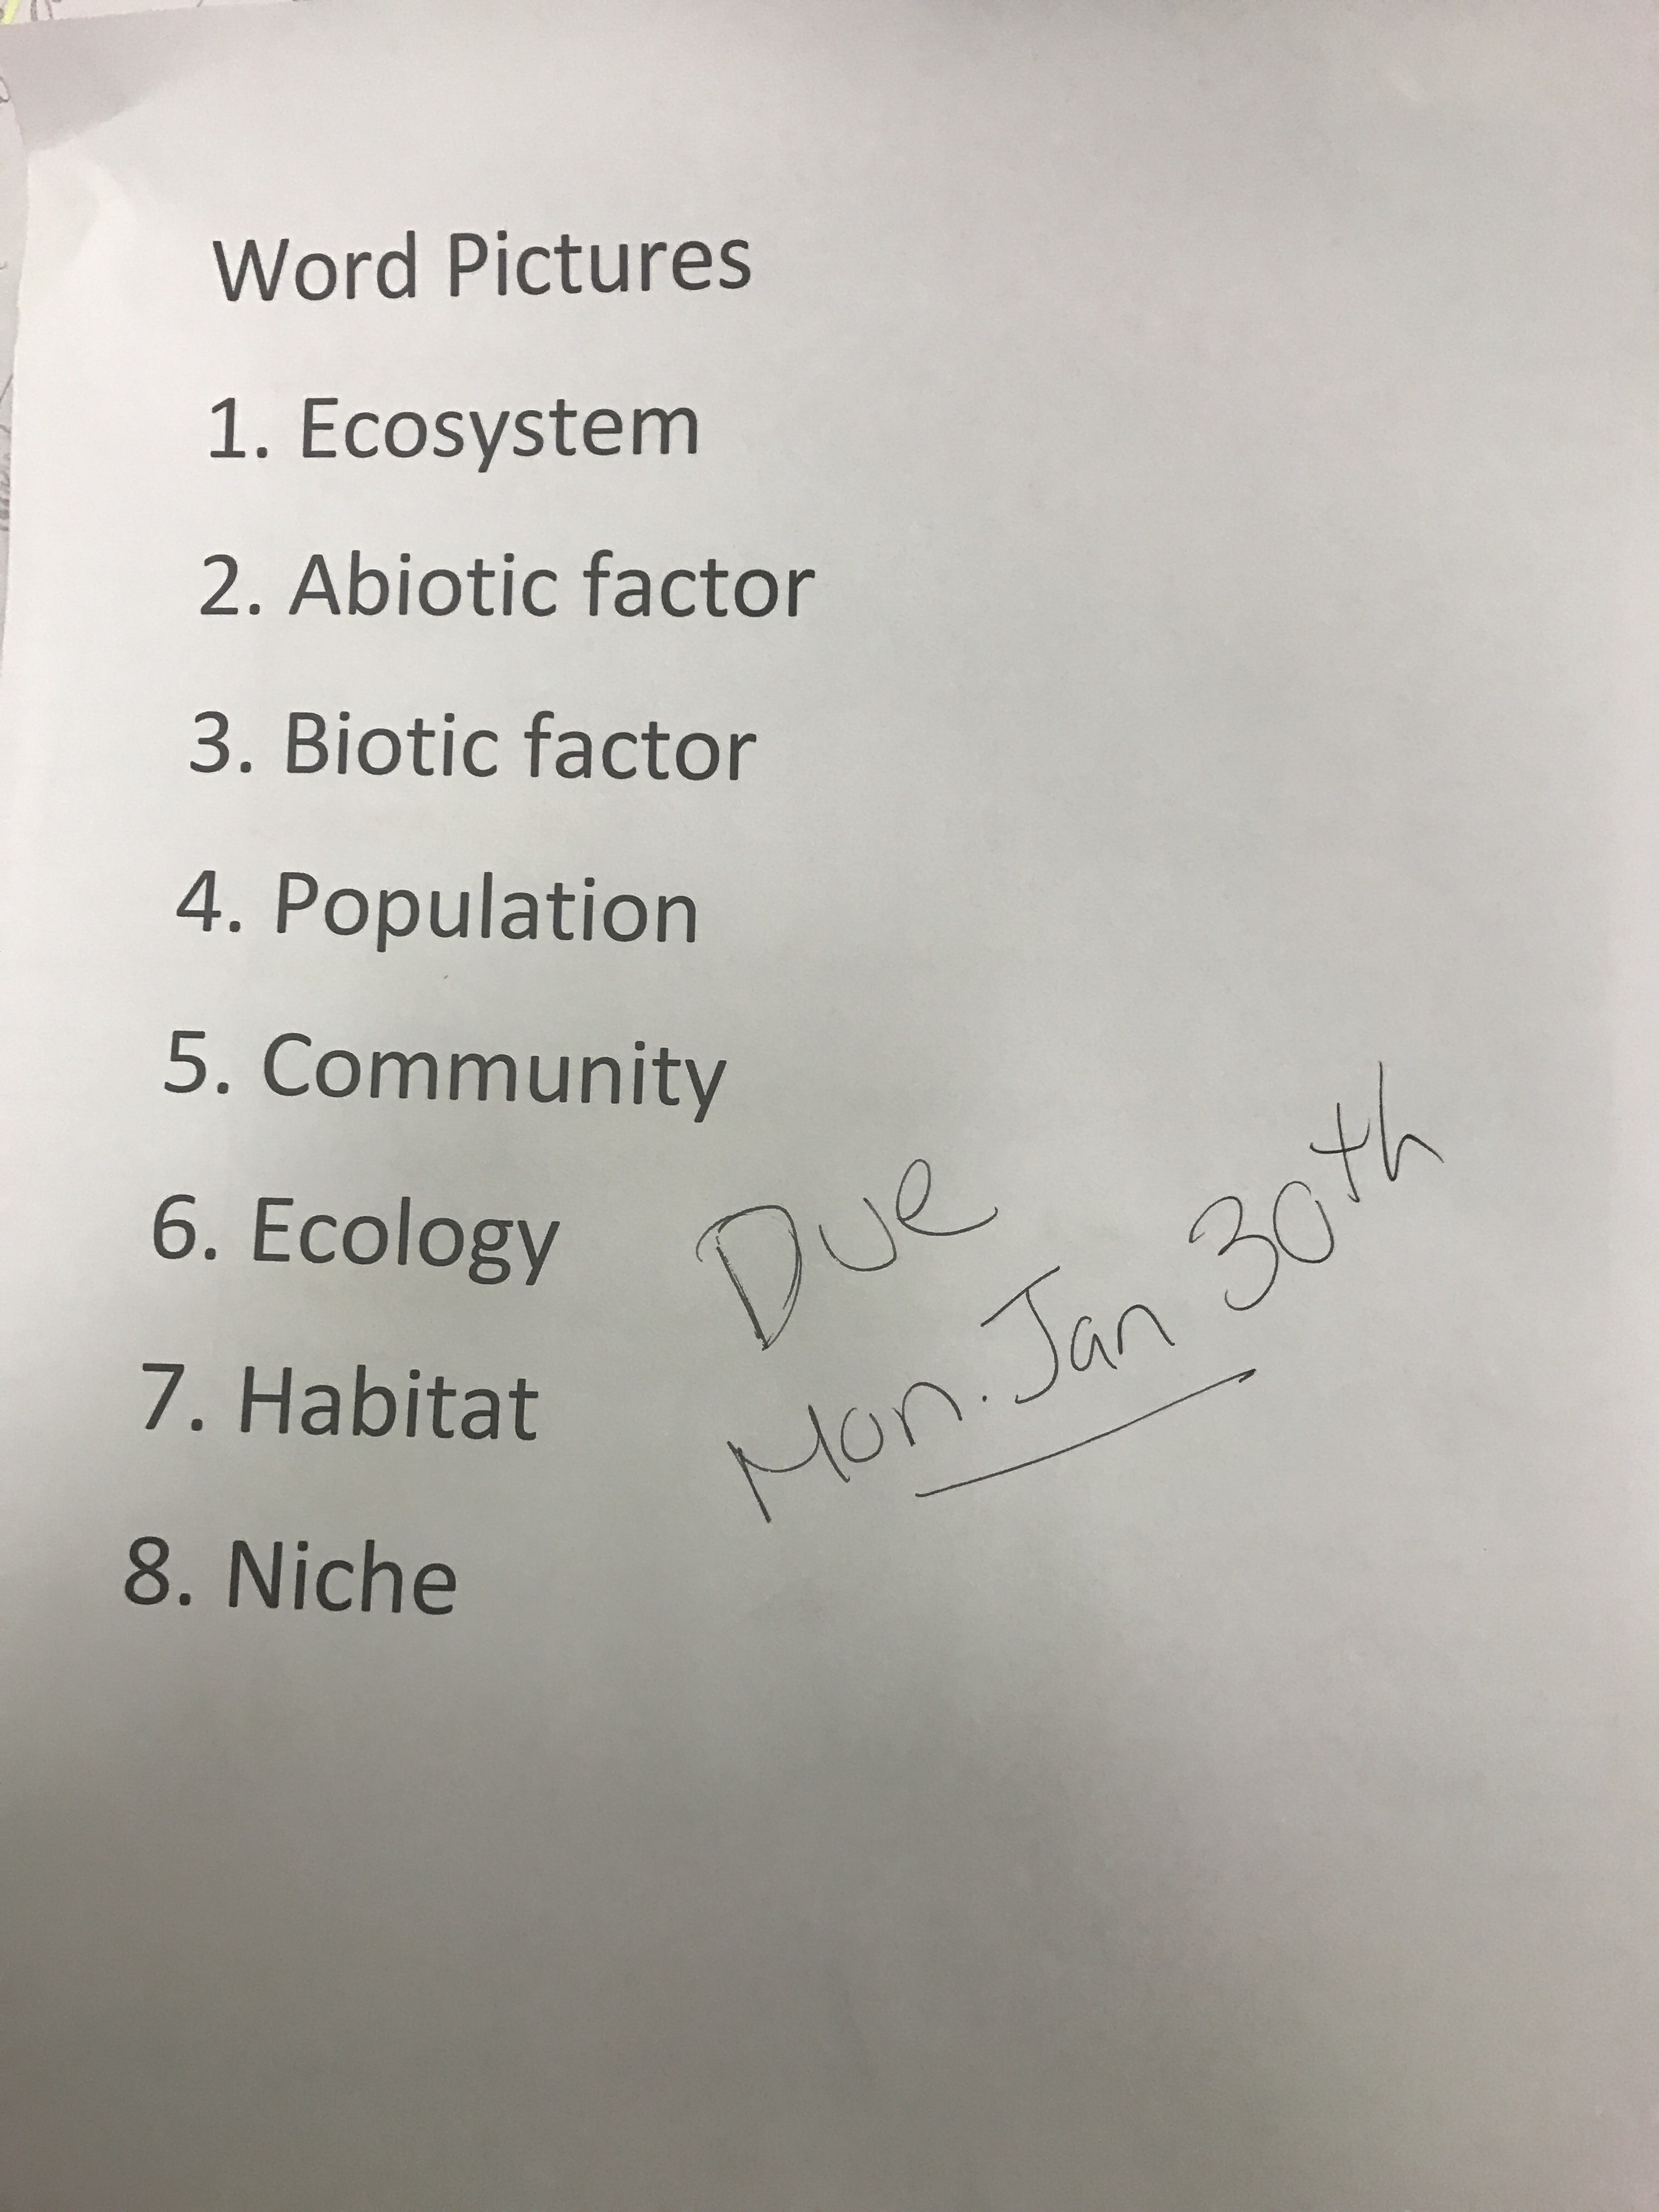 Word Pictures
1. Ecosystem
2. Abiotic factor
3. Biotic factor
4. Population
5. Community
6. Ecology
7. Habitat
8. Niche
Due
Mon. Jan 30th